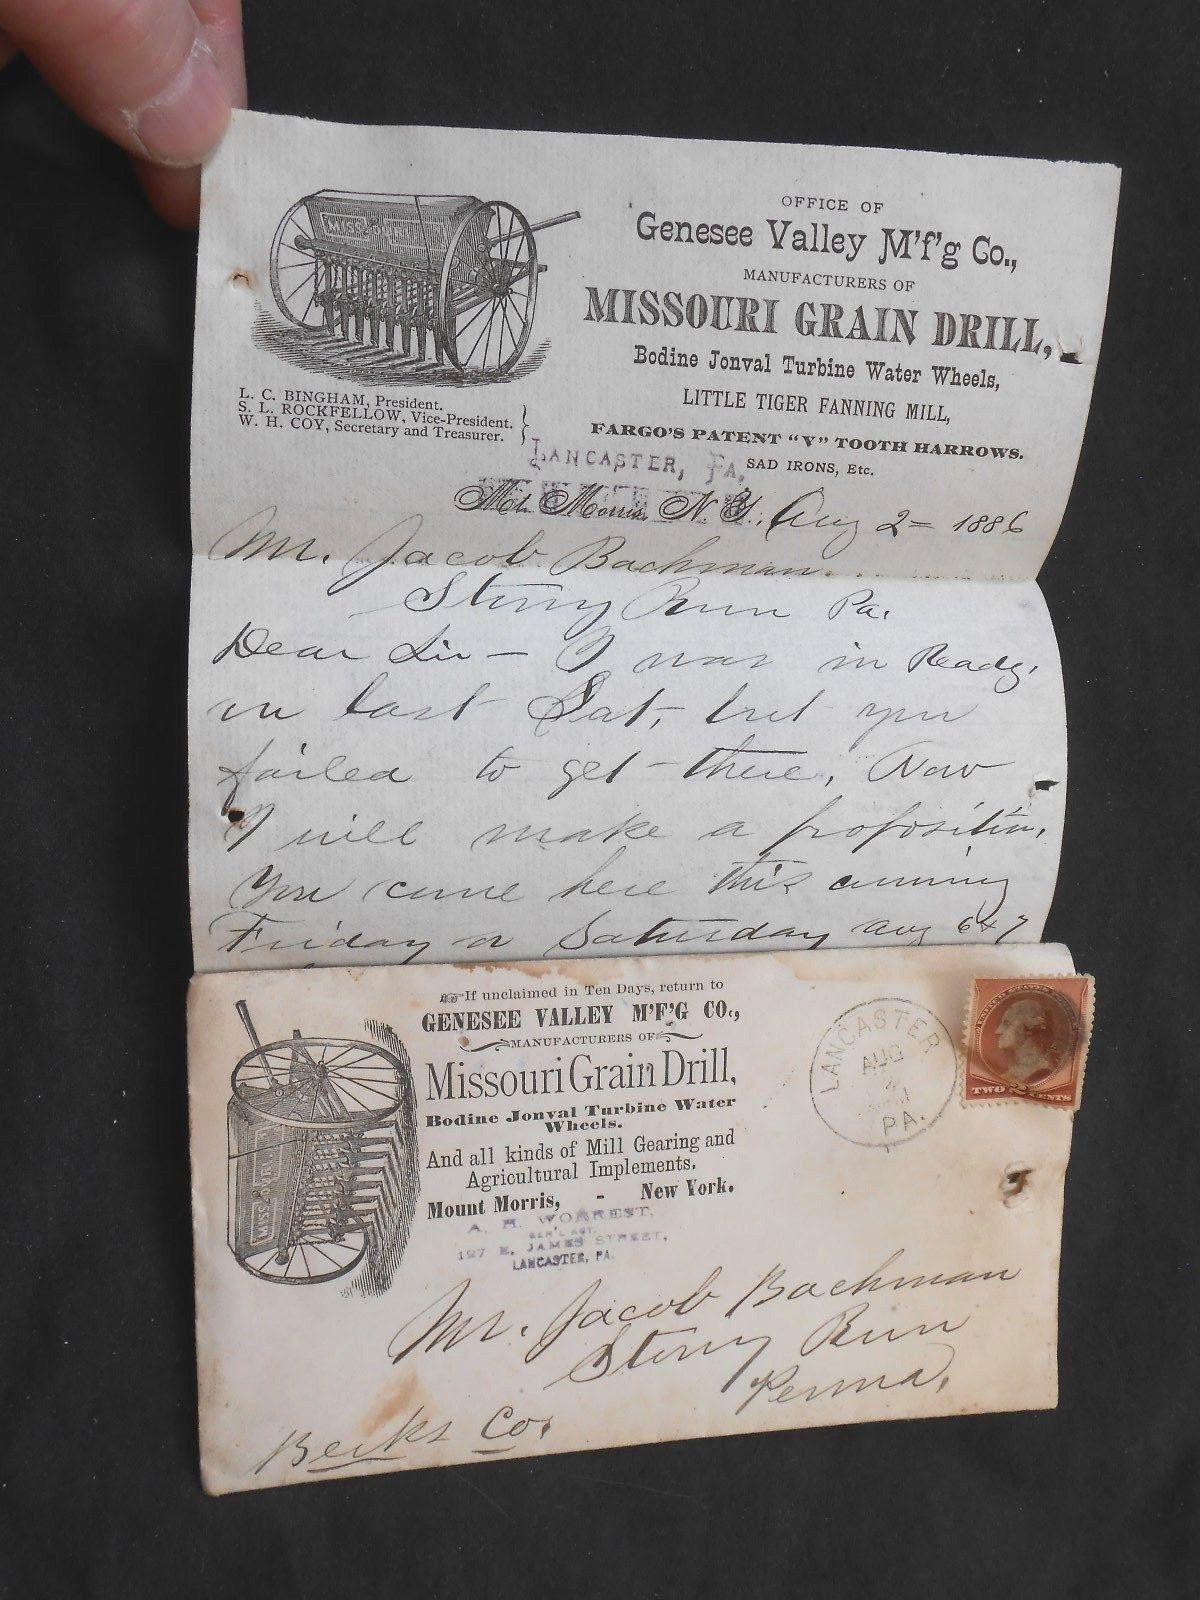 OFFICE OF
Genesee Valley M'f'g Co.,
MANUFACTURERS OF
MISSOURI GRAIN DRILL,
Bodine Jonval Turbine Water Wheels,
LITTLE TIGER FANNING MILL,
FARGO'S PATENT "V" TOOTH HARROWS.
SAD IRONS, Etc.
MISSOURI
L. C. BINGHAM, President.
S. L. ROCKFELLOW, Vice-President.
W. H. COY, Secretary and Treasurer.
LANCASTER, PA.
Mt. Morris, N. Y., Aug 2 = 1886
Mr. Jacob Bachman
Stony Run Pa.
Dear Sir – I was in Readg.
on last Sat, but you
failed to get there, Now
I will make a proposition.
You come here this coming
Friday or Saturday Aug 6 & 7
If unclaimed in Ten Days, return to
GENESEE VALLEY M'F'G CO.,
MANUFACTURERS OF
Missouri Grain Drill,
Bodine Jonval Turbine Water
Wheels.
And all kinds of Mill Gearing and
Agricultural Implements.
Mount Morris, - New York.
MISSOURI
A. H. WORREST,
GEN'L AGT.
127 E. JAMES STREET,
LANCASTER, PA.
LANCASTER
AUG
4
PA.
UNITED STATES POSTAGE
TWO 2 CENTS
Mr. Jacob Bachman
Stony Run
Penna,
Berks Co.